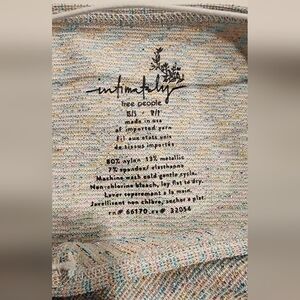 intimately
free people
XS/S • P/P
made in usa
of imported yarn
fil aux etats unis
de tissus importés
80% nylon 13% metallic
7% spandex/elasthanne
Machine wash cold gentle cycle.
Non-chlorine bleach, lay flat to dry.
Laver separement a la main.
Javellisant non chlore, secher a plat.
rn# 66170 vs# 32054